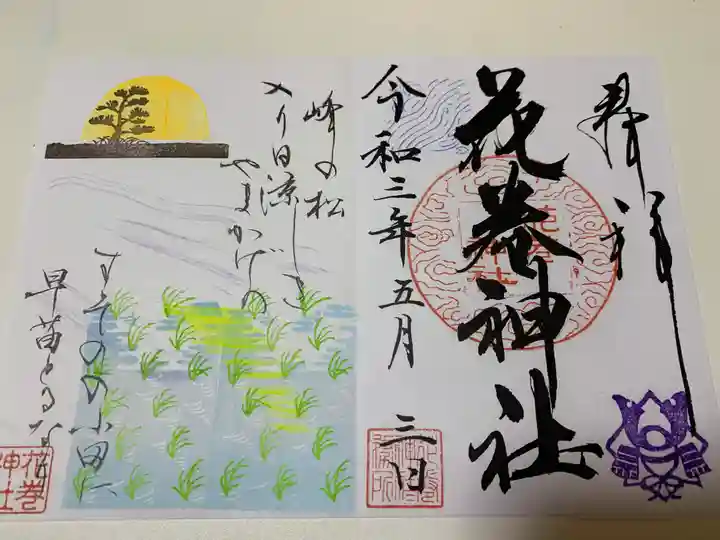 奉拝
花巻神社
令和三年五月三日
峰の松
入り日涼しき
やまかげの
すそのの小田に
早苗とるなり
花巻
神社